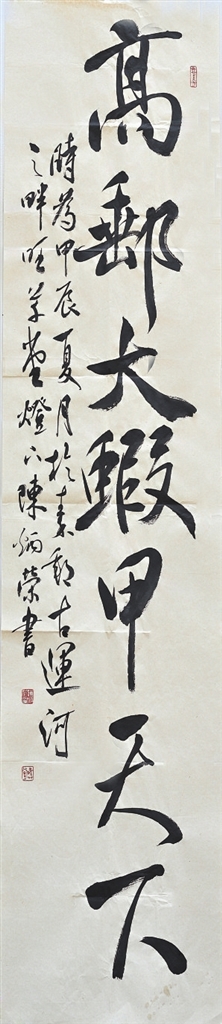 高郵大蝦甲天下
時為甲辰夏月於秦郵古運河
之畔草堂燈下陳炳榮書